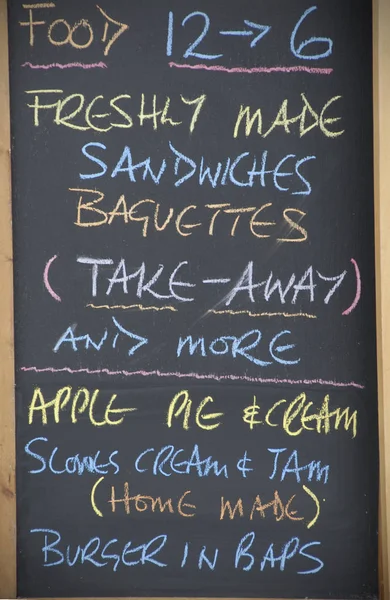 FOOD 12→6
FRESHLY MADE
SANDWICHES
BAGUETTES
(TAKE-AWAY)
AND MORE
APPLE PIE & CREAM
SCONES CREAM & JAM
(HOME MADE)
BURGER IN BAPS